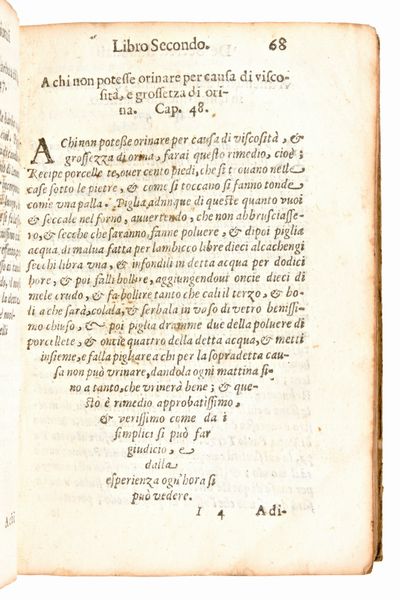 Libro Secondo. 68
A chi non potesse orinare per causa di visco-
sità, e grossetza di ori-
na. Cap. 48.
A Chi non potesse orinare per causa di viscosità, &
grossezza di orina, farai questo rimedio, cioè;
Recipe porcellete, ouer cento piedi, che si trouano nelle
case sotto le pietre, & come si toccano si fanno tonde
come vna palla. Piglia adunque di queste quanto vuoi
& seccale nel forno, auuertendo, che non abbrusciasse-
ro, & secche che saranno, fanne poluere, & dipoi piglia
acqua di malua fatta per lambicco libre dieci alcachengi
secchi libra vna, & infondili in detta acqua per dodici
hore, & poi falli bollire, aggiungendoui oncie dieci di
mele crudo, & fa bollire tanto che cali il terzo, & bo-
li a che sarà, colala, & serbala in vaso di vetro benissi-
mo chiuso, & poi piglia dramme due della poluere di
porcellete, & oncie quattro della detta acqua, & metti
insieme, e falla pigliare a chi per la sopradetta cau-
sa non può vrinare, dandola ogni mattina fi-
no a tanto, che vrinerà bene; & que-
sto è rimedio approbatissimo,
& verissimo come da i
simplici si può far
giudicio, e
dalla
esperienza ogn'hora si
può vedere.
I 4 Adi-